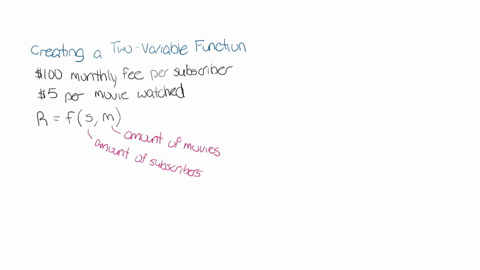 Creating a Two-Variable Function
$100 monthly fee per subscriber
$5 per movie watched
R = f(s, m)
amount of movies
amount of subscribers